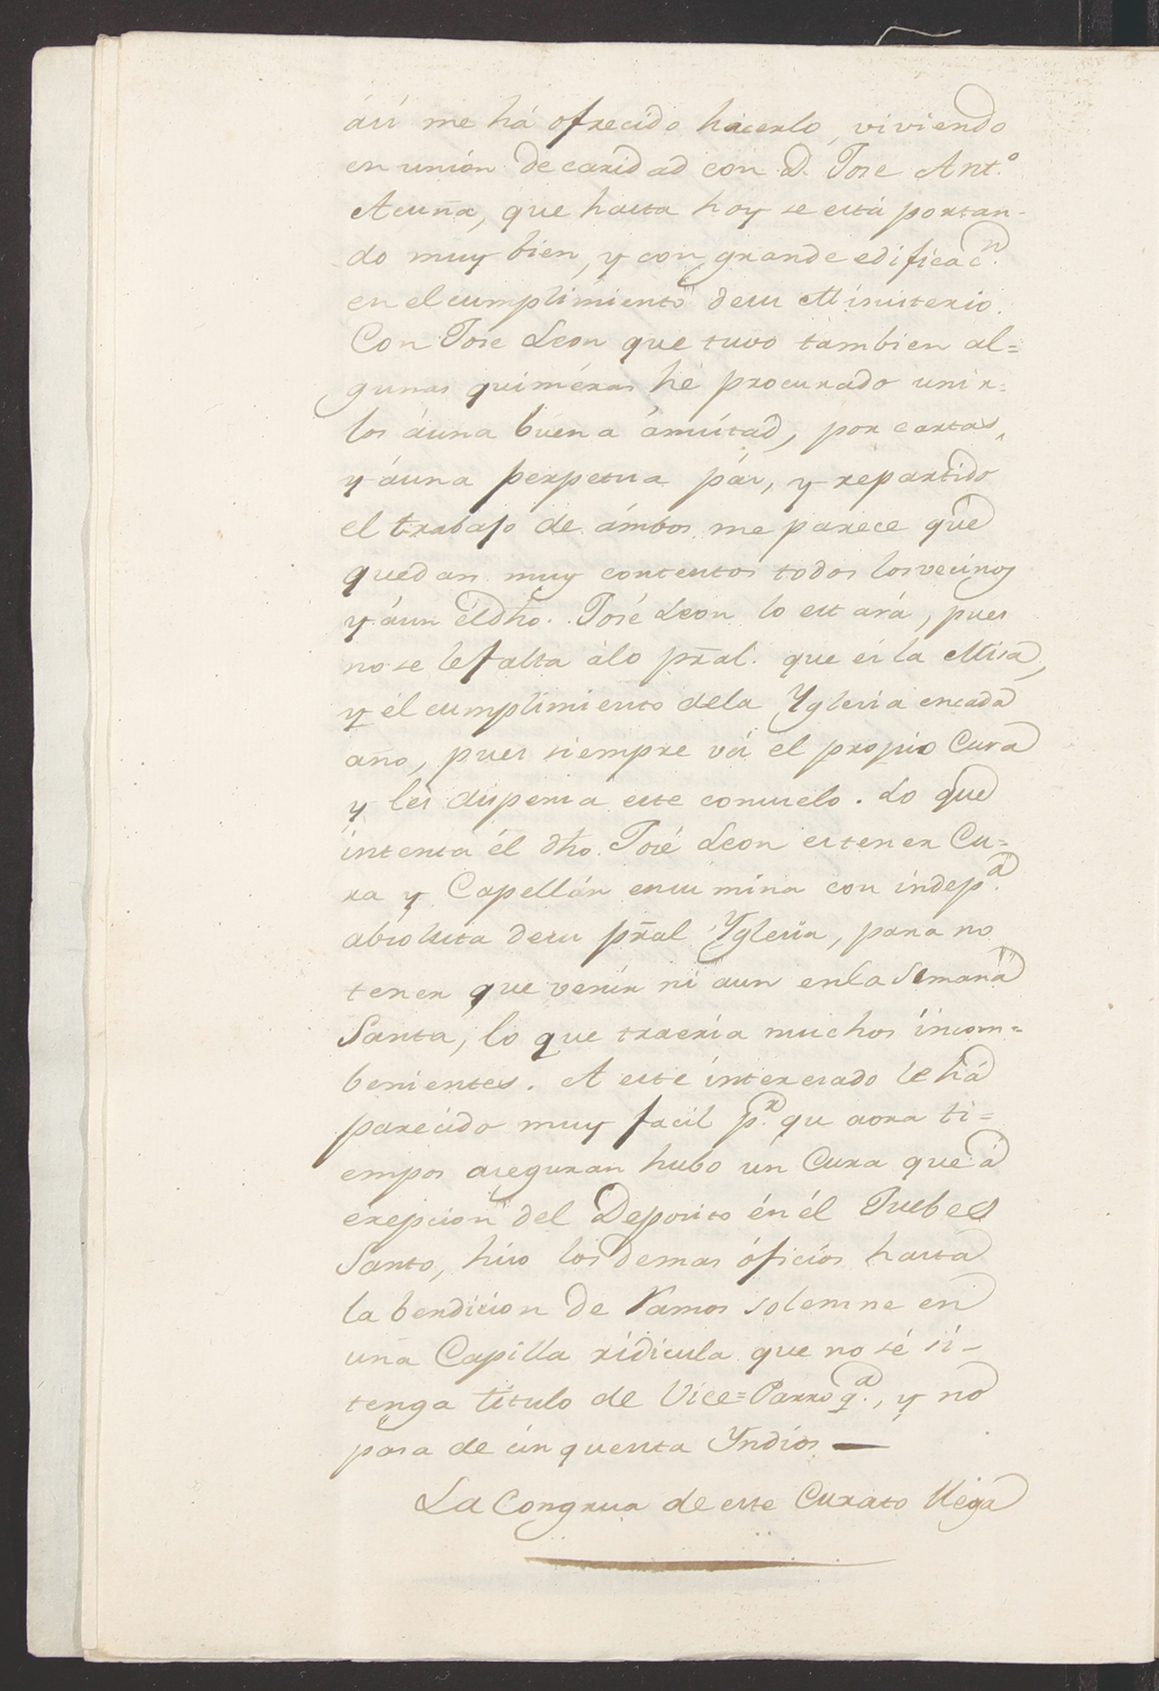 ási me há ofrecido hacerlo, viviendo
en unión de caridad con D. Jose Ant.º
Acuña, que hasta hoy se está portan-
do muy bien, y con grande edificac.n
en el cumplimiento desu Ministerio.
Con Jose Leon que tuvo tambien al=
gunas quiméras hé procurado unir=
los áuna buena ámistad, por cartas,
y áuna perpetua páz, y repartido
el trabajo de ámbos me parece que
quedan muy contentos todos los vecinos
y áun él dho. José Leon lo estará, pues
no se le falta álo pr̃al. que és la Misa,
y él cumplimiento dela Yglesia encada
año, pues siempre vá el propio Cura
y les dispensa este consuelo. Lo que
intenta él dho. José Leon es tener Cu=
ra y Capellán ensu mina con indep.a
absoluta desu pr̃al Yglesia, para no
tener que venir ni aun enla Semana
Santa, lo que traeria muchos incom=
benientes. A este interesado le há
parecido muy facil p.r qu aora ti=
empos aseguran hubo un Cura que á
exepcion del Deposito én él Juebes
Santo, hizo los demas óficios hasta
la bendicion de Ramos solemne en
una Capilla ridicula que no sé si-
tenga titulo de Vice=Parroq.a, y no
pasa de cinquenta Yndios —
La Congrua de este Curato llega